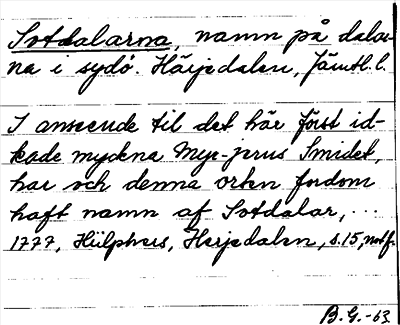 Sotdalarna, namn på dalar-
na i sydö. Härjedalen, Jämtl. l.
I anseende til det här först id-
kade myckna Myr-jerns Smidet,
har och denna orten fordom
haft namn af Sotdalar, ...
1777, Hülphers, Herjedalen, s. 15, not f.
B.G. -63